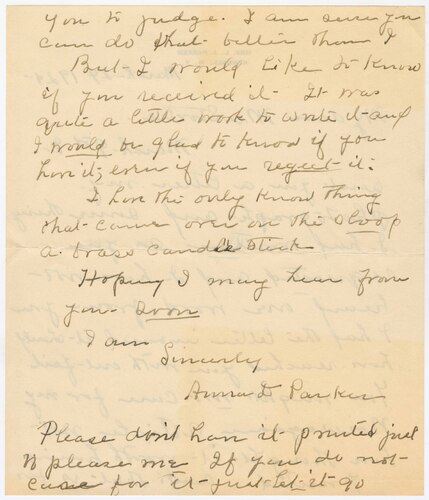 you to judge. I am sure you
can do that better than I
But I would like to know
if you received it. It was
quite a little work to write it and
I would be glad to know if you
have it; even if you regect it.
I have the only know thing
that came over on the sloop
a brass candle stick
Hoping I may hear from
you soon
I am
Sincerly
Anna D Parker
Please don't have it printed just
to please me If you do not
care for it just let it go